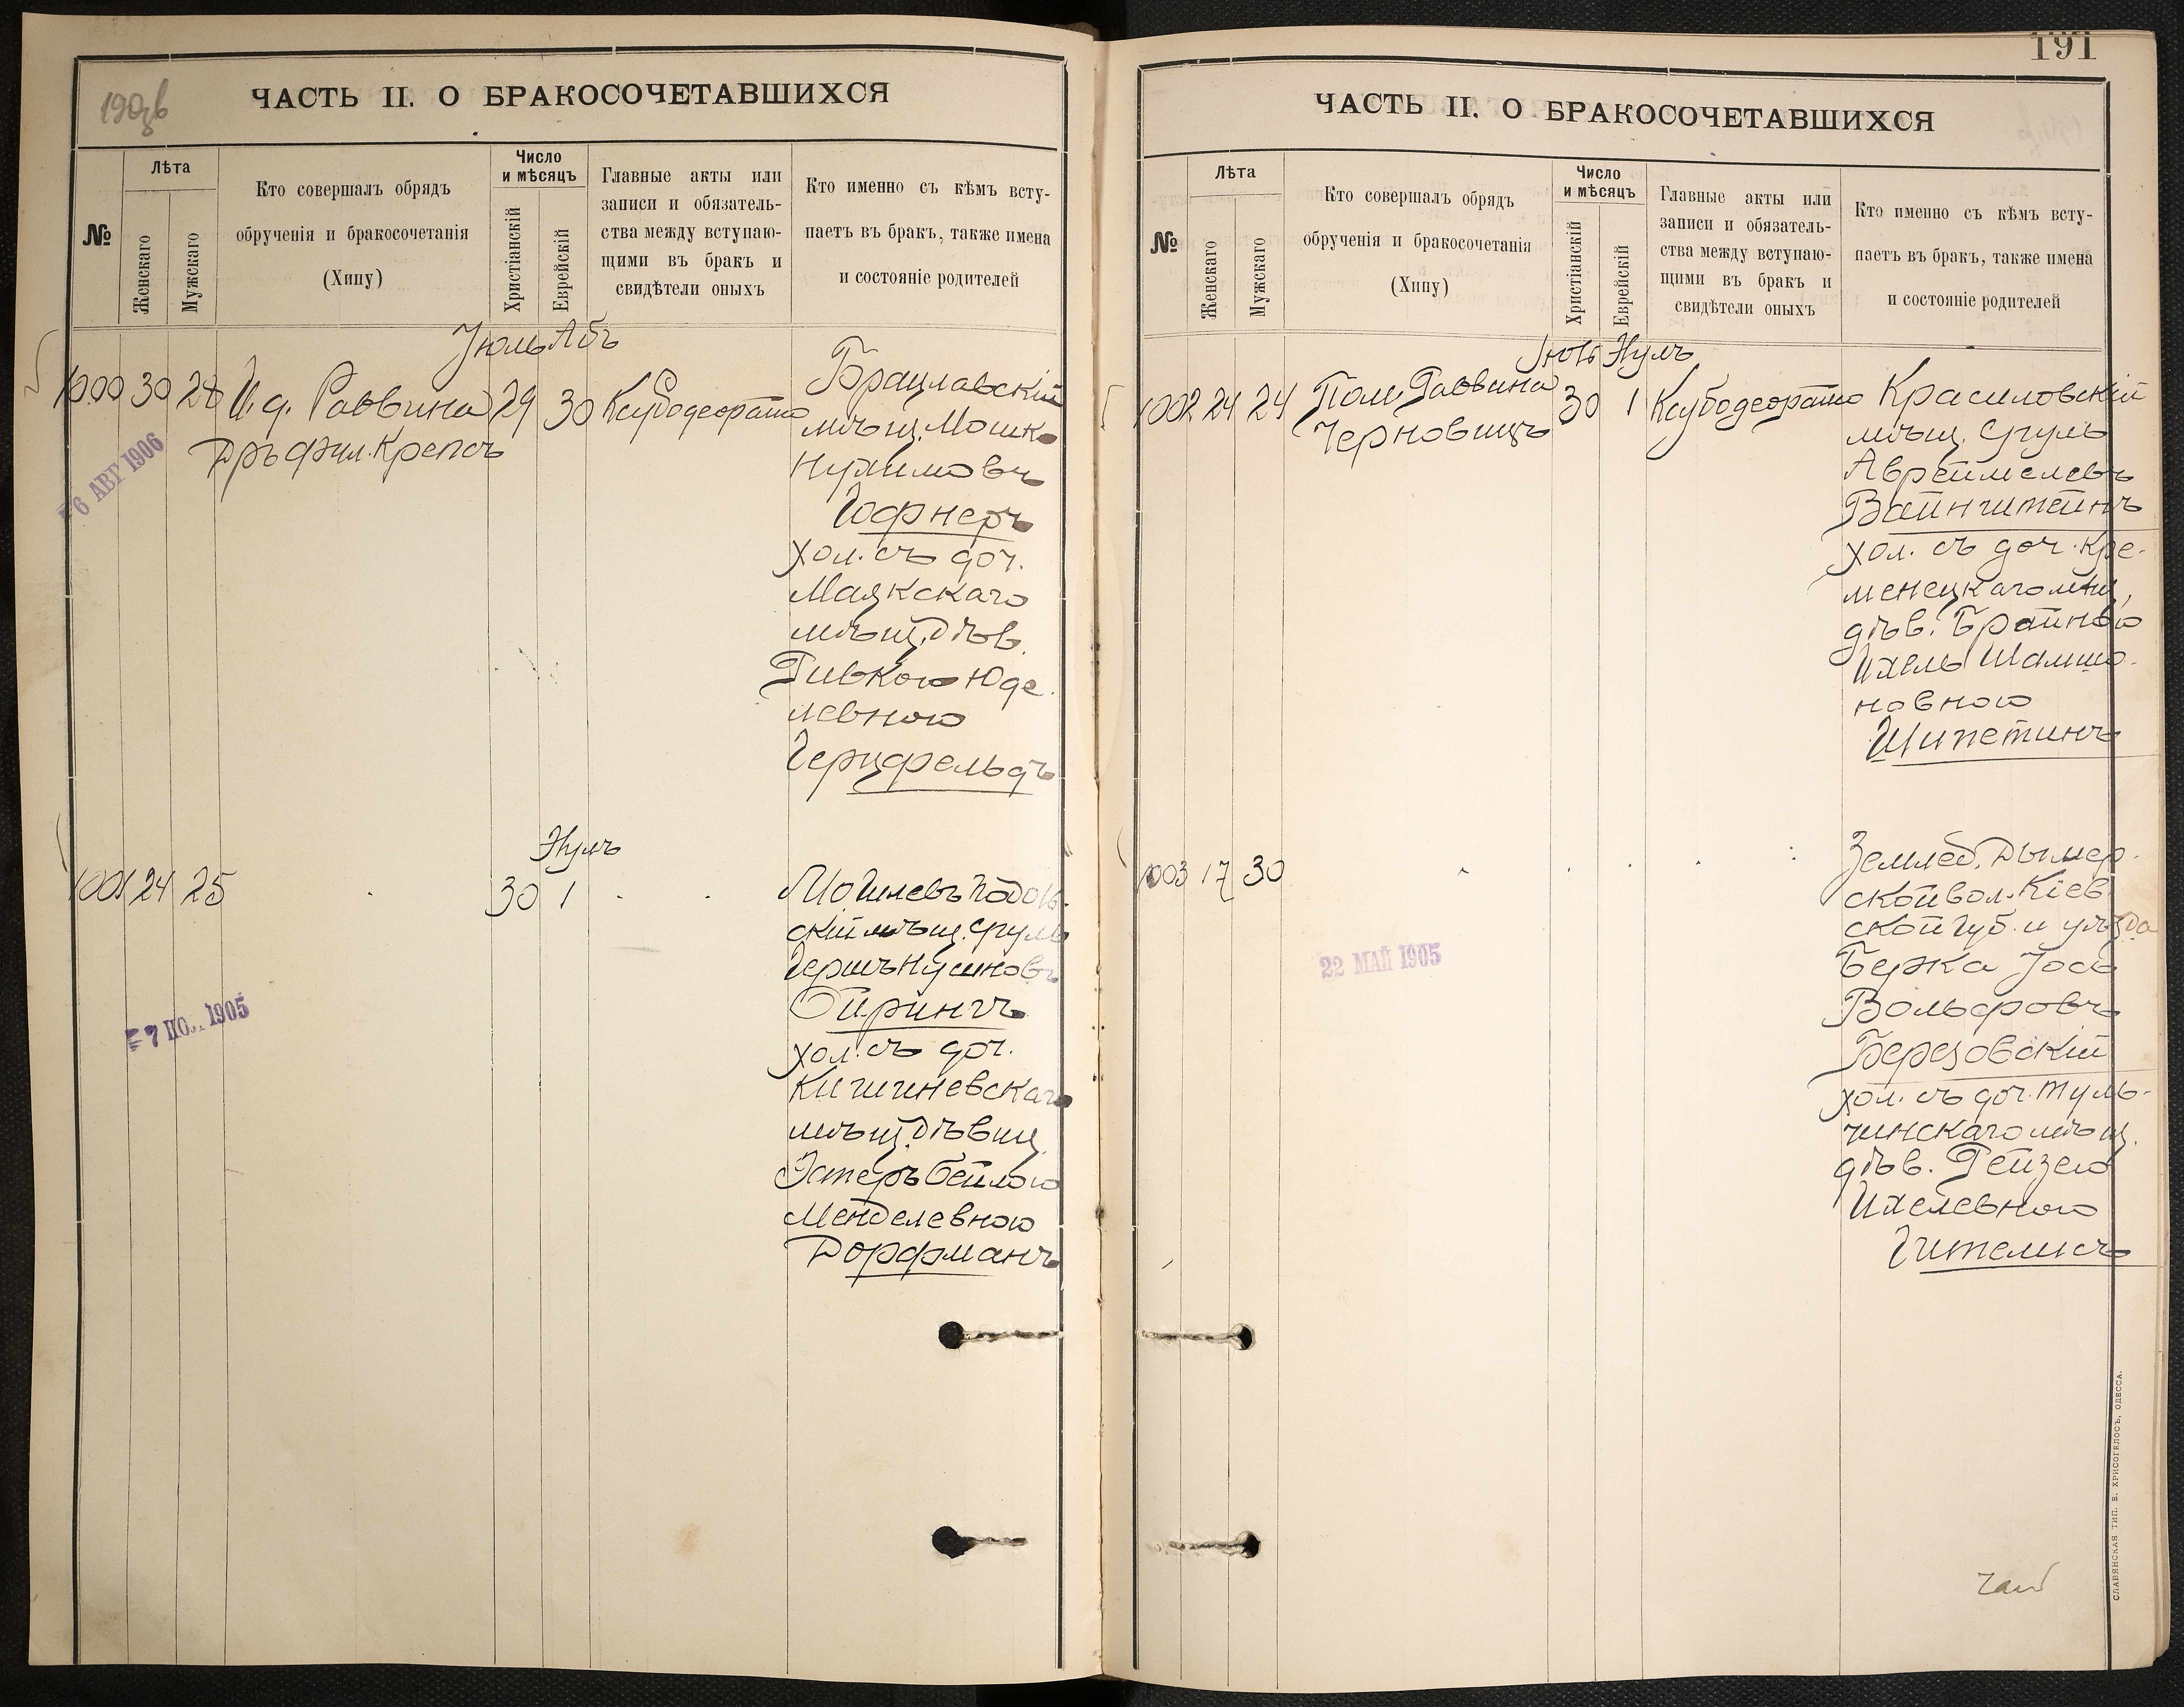 ЧАСТЬ II. О БРАКОСОЧЕТАВШИХСЯ
№
Лѣта
Женскаго
Мужскаго
Кто совершалъ обрядъ
обрученія и бракосочетанія
(Хипу)
Число
и мѣсяцъ
Христіанскій
Еврейскій
Главные акты или
записи и обязатель-
ства между вступаю-
щими въ бракъ и
свидѣтели оныхъ
Кто именно съ кѣмъ всту-
паетъ въ бракъ, также имена
и состояніе родителей
Іюль Абъ
1000 30 28 И.д. Раввина 29 30 Ксубодеорато
Дръ фил. Крепсъ
6 АВГ 1906
Брацлавскій
мѣщ. Мошко
Нухимовъ
Гофнеръ
хол. съ доч.
Маякскаго
мѣщ. дѣв.
Ривкою Юде-
левною
Герцфельдъ
Элулъ
1001 24 25 30 1
7 НО.. 1905
Могилевъ Подоль-
скій мѣщ. Сруль
Гершъ Нусиновъ
Ойрингъ
хол. съ доч.
Кишиневскаго
мѣщ. дѣвиц.
Эстеръ Бейлою
Менделевною
Дорфманъ
191
ЧАСТЬ II. О БРАКОСОЧЕТАВШИХСЯ
№
Лѣта
Женскаго
Мужскаго
Кто совершалъ обрядъ
обрученія и бракосочетанія
(Хипу)
Число
и мѣсяцъ
Христіанскій
Еврейскій
Главные акты или
записи и обязатель-
ства между вступаю-
щими въ бракъ и
свидѣтели оныхъ
Кто именно съ кѣмъ всту-
паетъ въ бракъ, также имена
и состояніе родителей
Іюль Элулъ
1002 24 24 Пом. Раввина 30 1 Ксубодеорато
Черновицъ
Красиловскій
мѣщ. Сруль
Авреймелевъ
Вайнштейнъ
хол. съ доч. Кре-
менецкаго мѣщ.
дѣв. Брайною
Ихель Шамшо-
новною
Шпетинъ
1003 17 30
22 МАЙ 1905
Землед. Дымер-
ской вол. Кіев-
ской губ. и уѣзда
Берка Іось
Вольфовъ
Березовскій
хол. съ доч. Туль-
чинскаго мѣщ.
дѣв. Рейзею
Ихелевною
Гителисъ
СЛАВЯНСКАЯ ТИП. Е. ХРИСОГЕЛОСЪ, ОДЕССА.